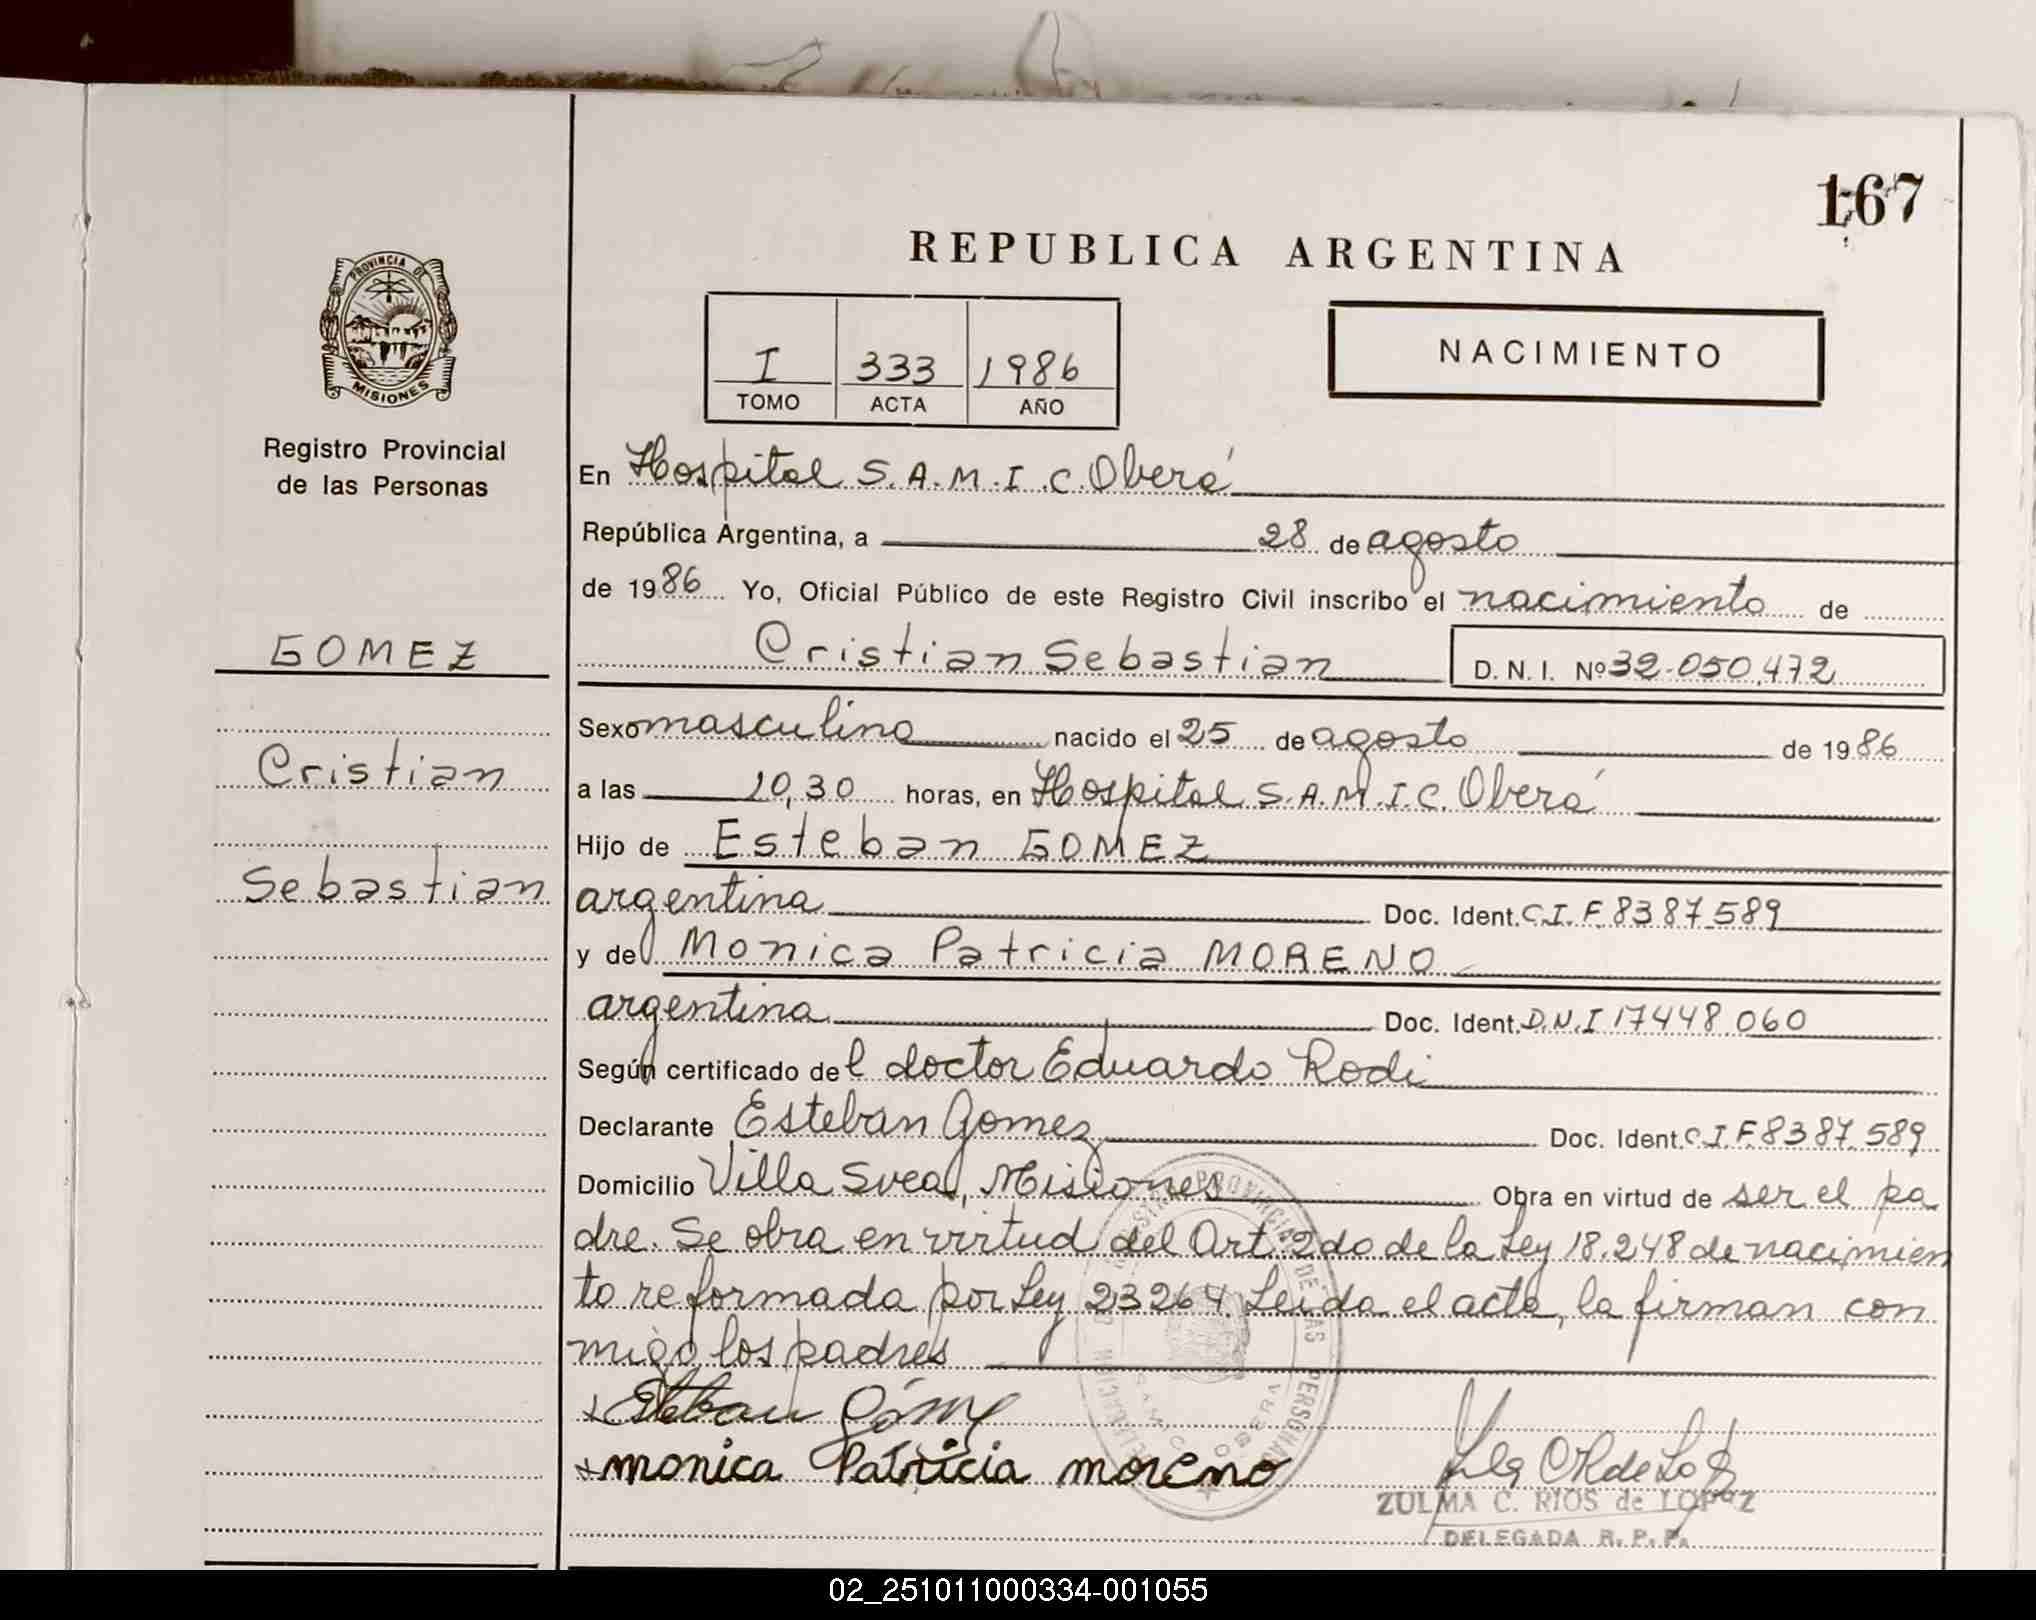 167
REPUBLICA ARGENTINA
PROVINCIA DE
MISIONES
I 333 1986
TOMO ACTA AÑO
NACIMIENTO
Registro Provincial
de las Personas
En Hospital S.A.M.I.C. Oberá
República Argentina, a 28 de agosto
de 1986 Yo, Oficial Público de este Registro Civil inscribo el nacimiento de
GOMEZ
Cristian Sebastian D. N. I. Nº 32.050.472
Sexo masculino nacido el 25 de agosto de 1986
Cristian
a las 10,30 horas, en Hospital S.A.M.I.C. Oberá
Hijo de Esteban GOMEZ
Sebastian
argentina Doc. Ident. C.I.F. 8387.589
y de Monica Patricia MORENO
argentina Doc. Ident. D.N.I 17448.060
Según certificado del doctor Eduardo Rodi
Declarante Esteban Gomez Doc. Ident. C.I.F. 8387.589
Domicilio Villa Svea, Misiones Obra en virtud de ser el pa
dre. Se obra en virtud del Art. 2do de la Ley 18.248 de nacimien
to reformada por Ley 23264. Leida el acta, la firman con
migo los padres
Esteban Gómez
monica Patricia moreno
ZULMA C. RIOS de LOPEZ
DELEGADA R. P. P.
02_251011000334-001055